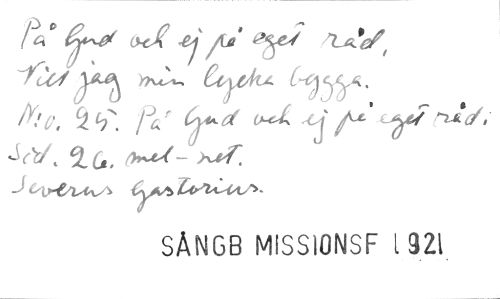 På Gud och ej på eget råd,
Vill jag min lycka bygga.
N:o. 25. På Gud och ej på eget råd:
Sid. 26. mel-not.
Severus Gastorius.
SÅNGB MISSIONSF 1921